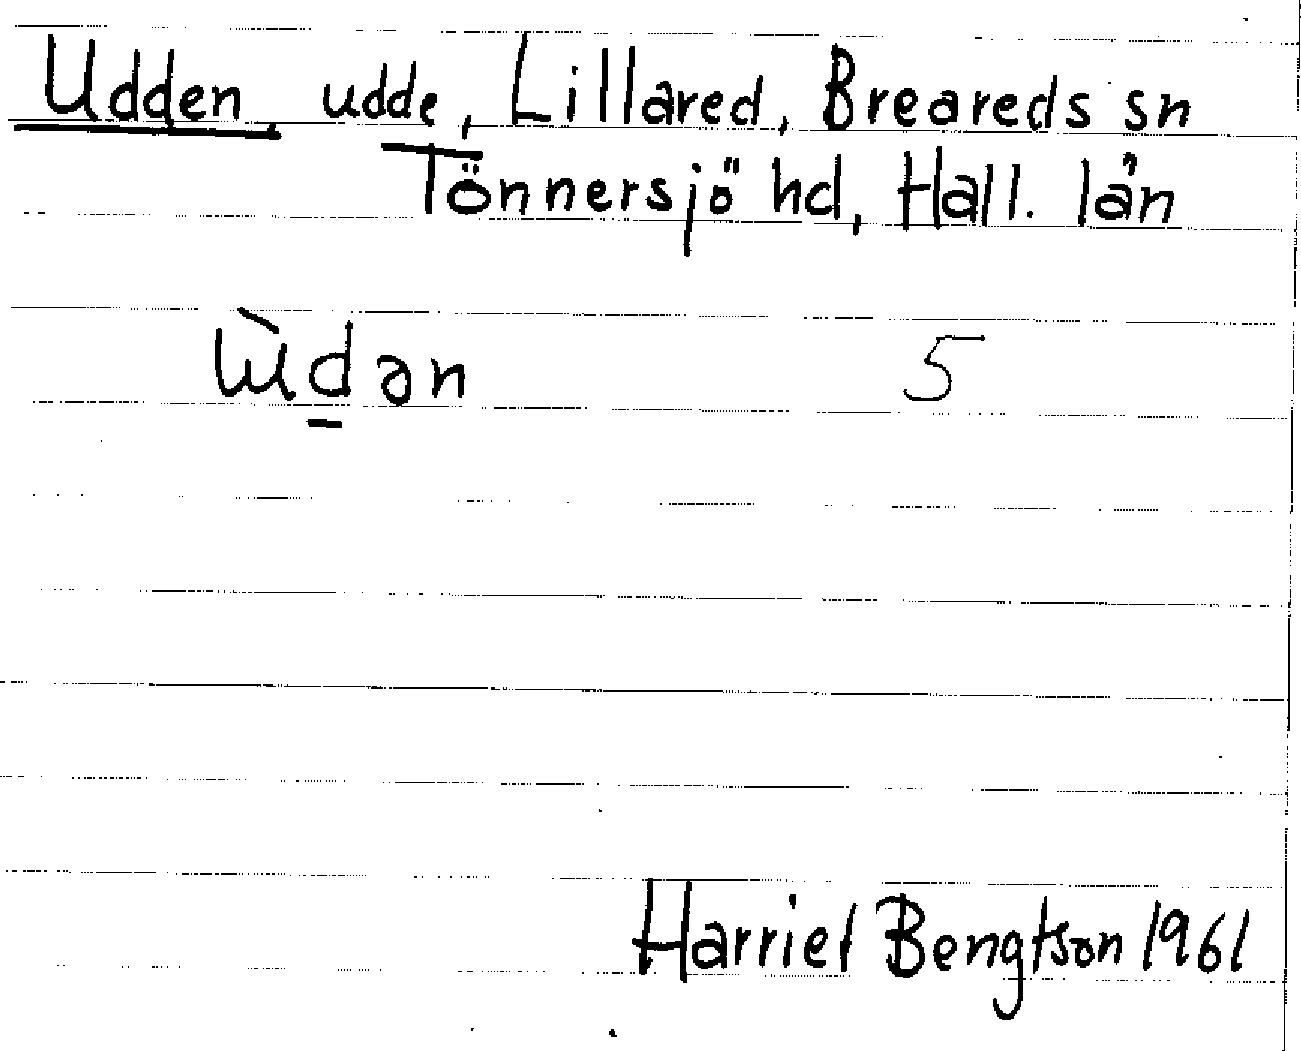 Udden, udde, Lillared, Breareds sn
Tönnersjö hd, Hall. län
ɯ̀d̲ən 5
Harriet Bengtson 1961